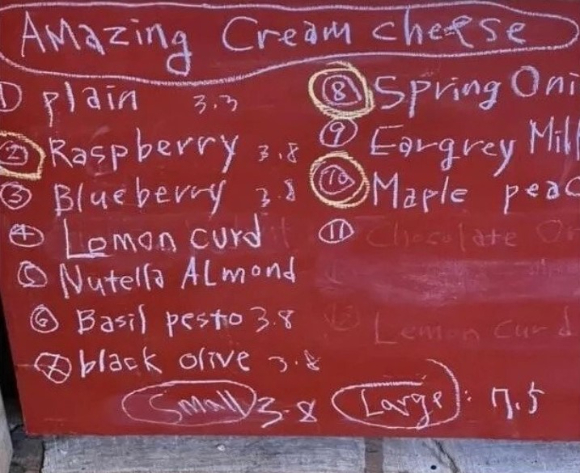 Amazing Cream cheese
① plain 3.3
② Raspberry 3.8
③ Blueberry 3.8
④ Lemon curd
⑤ Nutella ALmond
⑥ Basil pesto 3.8
⑦ black olive 3.8
⑧ Spring Oni
⑨ Eargrey Mil
⑩ Maple peac
⑪ Chocolate Or
Lemon curd
Small 3.8 Large: 7.5